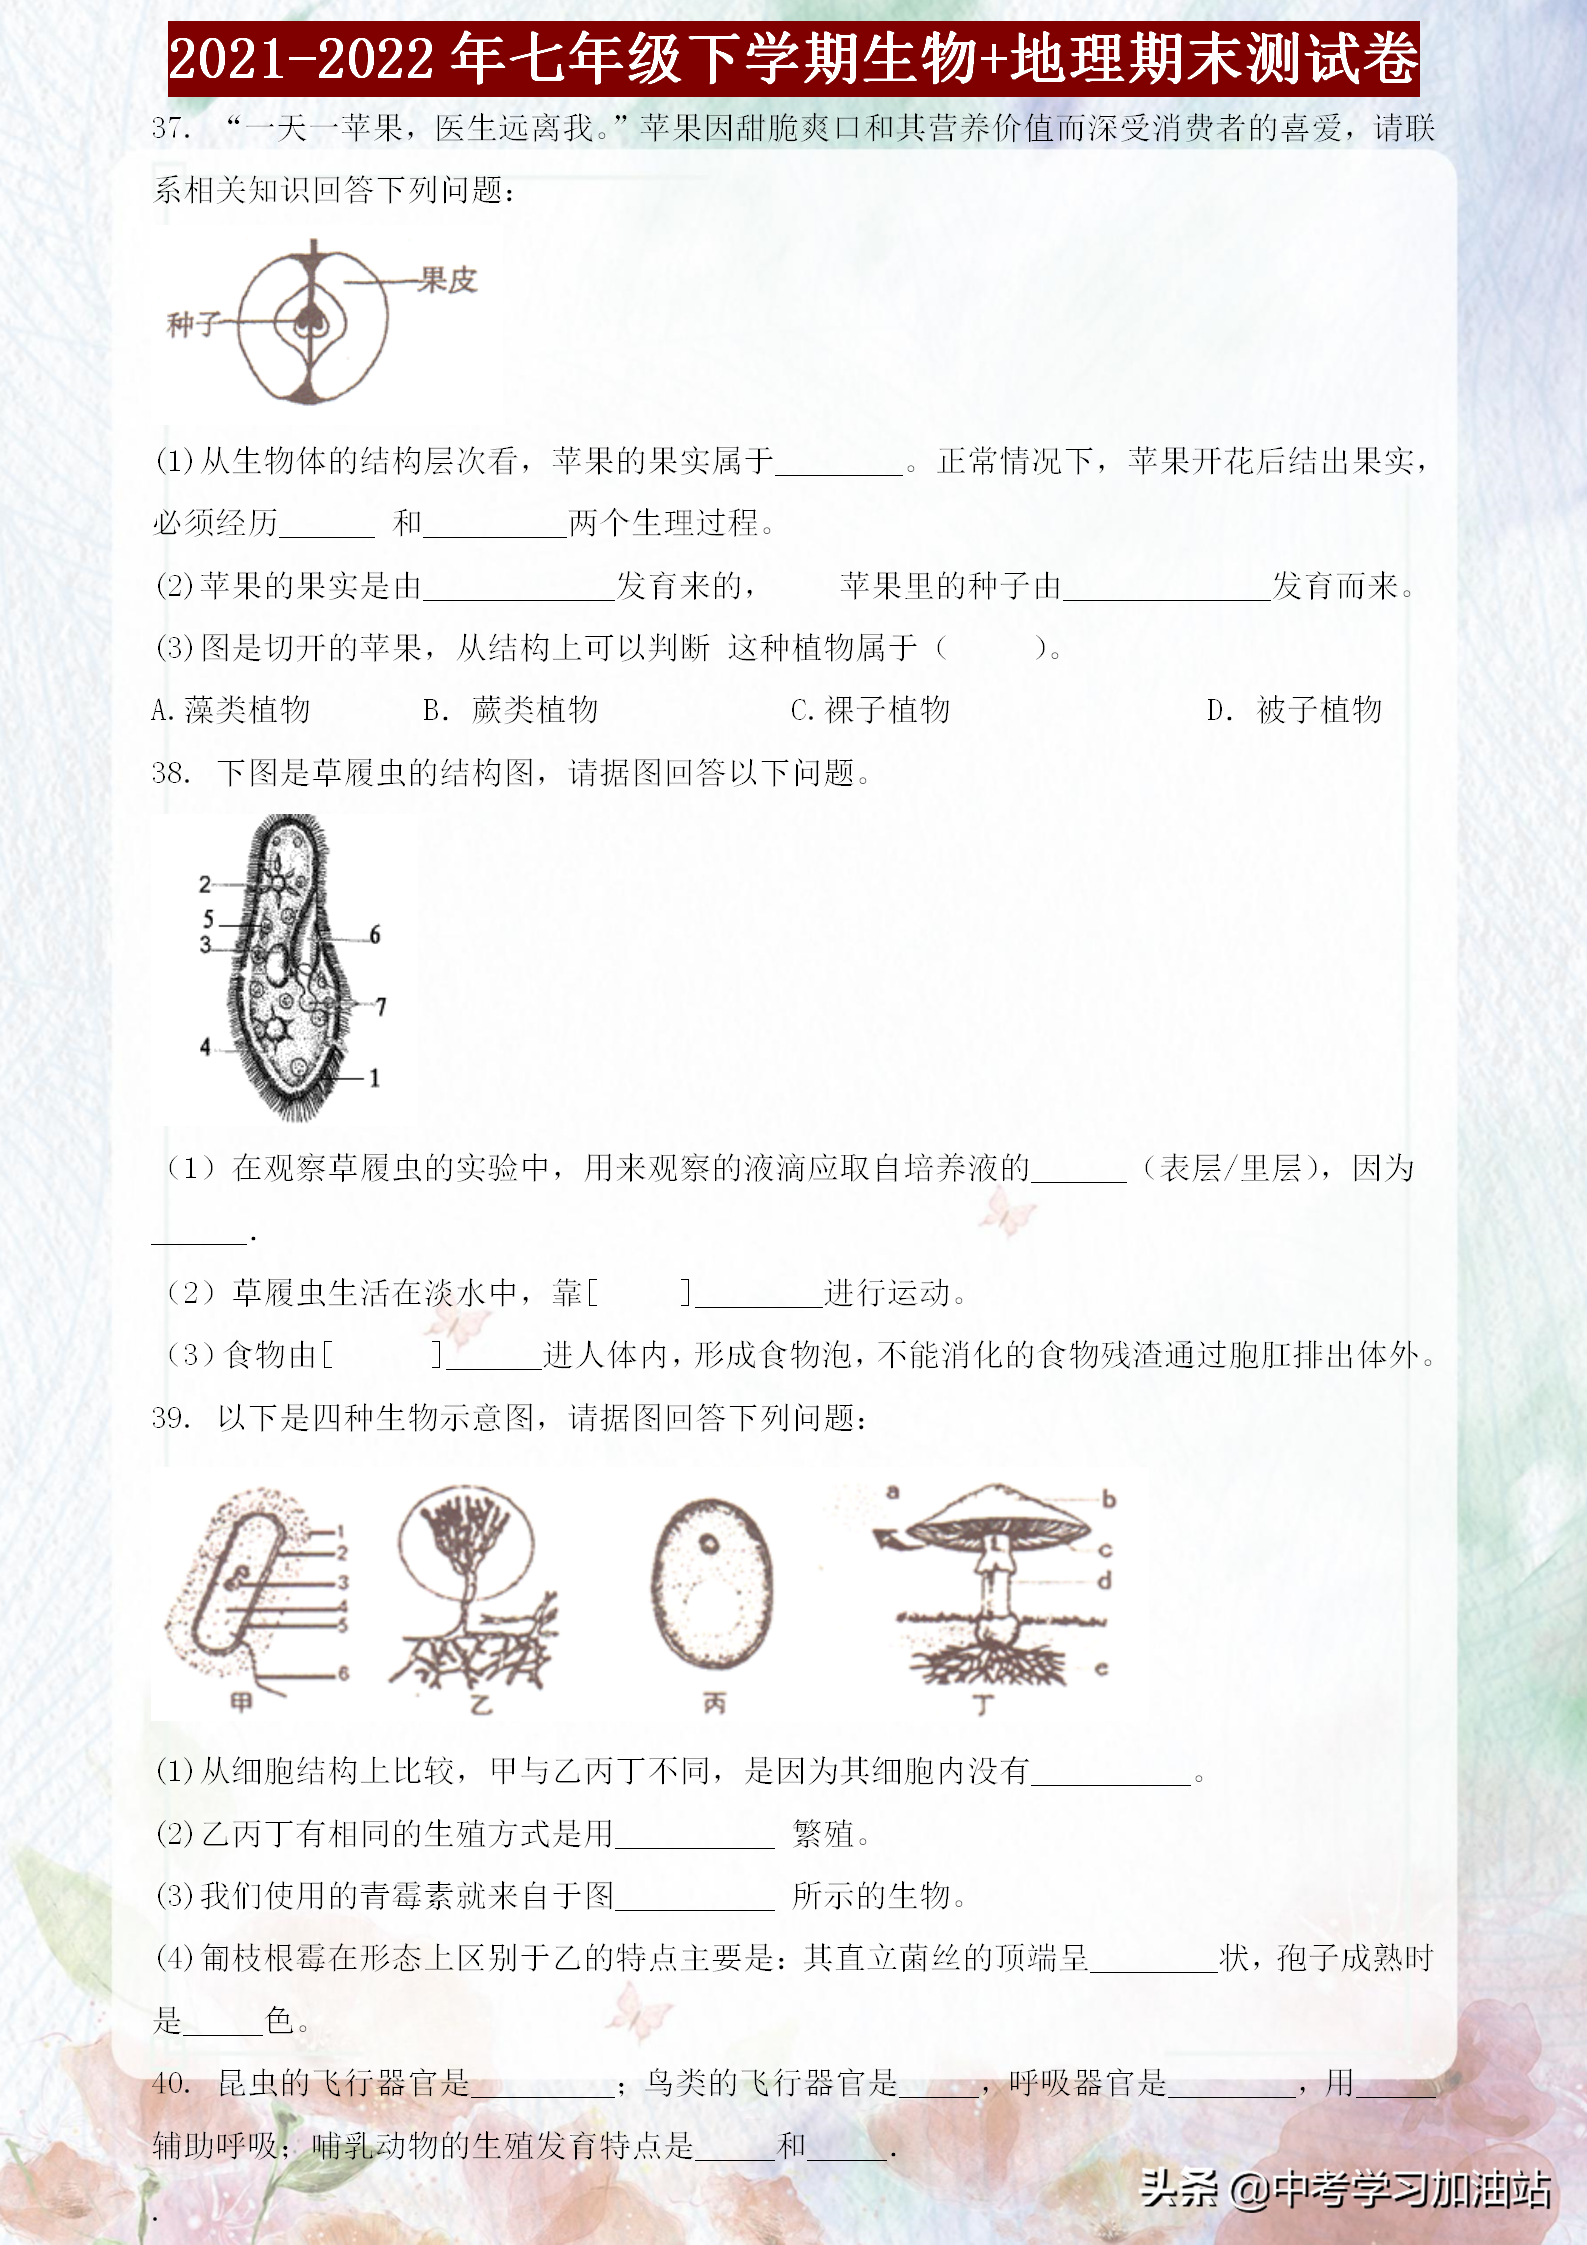 2021-2022年七年级下学期生物+地理期末测试卷
37. “一天一苹果，医生远离我。”苹果因甜脆爽口和其营养价值而深受消费者的喜爱，请联
系相关知识回答下列问题：
果皮
种子
(1)从生物体的结构层次看，苹果的果实属于________。正常情况下，苹果开花后结出果实，
必须经历______ 和_________两个生理过程。
(2)苹果的果实是由____________发育来的， 苹果里的种子由_____________发育而来。
(3)图是切开的苹果，从结构上可以判断 这种植物属于（ ）。
A.藻类植物 B. 蕨类植物 C.裸子植物 D. 被子植物
38. 下图是草履虫的结构图，请据图回答以下问题。
2
5
3
6
7
4
1
（1）在观察草履虫的实验中，用来观察的液滴应取自培养液的______（表层/里层），因为
______.
（2）草履虫生活在淡水中，靠[ ]________进行运动。
（3）食物由[ ]______进人体内，形成食物泡，不能消化的食物残渣通过胞肛排出体外。
39. 以下是四种生物示意图，请据图回答下列问题：
1
2
3
4
5
6
a
b
c
d
e
甲 乙 丙 丁
(1)从细胞结构上比较，甲与乙丙丁不同，是因为其细胞内没有__________。
(2)乙丙丁有相同的生殖方式是用__________ 繁殖。
(3)我们使用的青霉素就来自于图__________ 所示的生物。
(4)匍枝根霉在形态上区别于乙的特点主要是：其直立菌丝的顶端呈________状，孢子成熟时
是_____色。
40. 昆虫的飞行器官是_________；鸟类的飞行器官是_____，呼吸器官是________，用_____
辅助呼吸；哺乳动物的生殖发育特点是_____和_____.
.
头条 @中考学习加油站